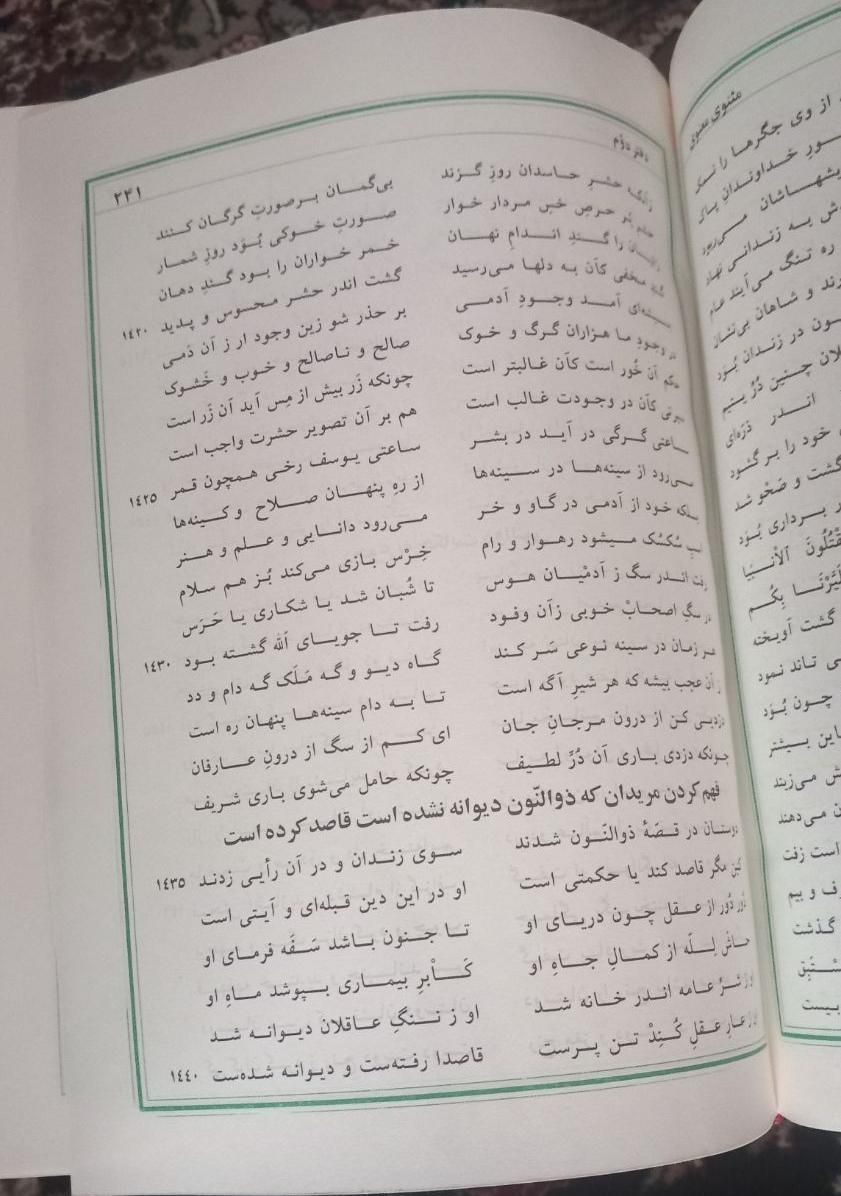 دفتر دوّم ۲۴۱
زانکه حشرِ حاسدان روزِ گزند بی‌گمان بر صورتِ گرگان کنند
حشرِ پُر حرصِ خسِ مردار خوار صورتِ خوکی بُوَد روزِ شمار
زانیان را گندِ اندامِ نهان خمر خواران را بود گندِ دهان
گندِ مخفی کآن به دلها می‌رسید گشت اندر حشر محسوس و پدید ۱٤۲۰
بیشه‌ای آمد وجودِ آدمی بر حذر شو زین وجود ار ز آن دَمی
در وجودِ ما هزاران گرگ و خوک صالح و ناصالح و خوب و خَشوک
حکم آن خُور است کآن غالبتر است چونکه زَر بیش از مِس آید آن زَر است
سیرتی کآن در وجودت غالب است هم بر آن تصویر حشرت واجب است
ساعتی گرگی در آید در بشر ساعتی یوسف رخی همچون قمر ۱٤۲۵
می‌رود از سینه‌ها در سینه‌ها از رهِ پنهان صلاح و کینه‌ها
بلکه خود از آدمی در گاو و خر می‌رود دانایی و علم و هنر
اسبِ سُکسُک میشود رهوار و رام خِرْس بازی می‌کند بُز هم سلام
رفت اندر سگ ز آدمْیان هوس تا شُبان شد یا شکاری یا حَرَس
در سگِ اصحابْ خویی زآن وفود رفت تا جویای اَلله گشته بود ۱٤۳۰
هر زمان در سینه نوعی سَر کند گاه دیو و گه مَلَک گه دام و دد
ز آن عجب بیشه که هر شیر آگه است تا به دام سینه‌ها پنهان ره است
دزدیی کن از درون مرجانِ جان ای کم از سگ از درونِ عارفان
چونکه دزدی باری آن دُرِّ لطیف چونکه حامل می‌شوی باری شریف
فهم کردن مریدان که ذوالنّون دیوانه نشده است قاصد کرده است
دوستان در قصّهٔ ذوالنّون شدند سوی زندان و در آن رأیی زدند ۱٤۳۵
کین مگر قاصد کند یا حکمتی است او در این دین قبله‌ای و آیتی است
دُور دُور از عقل چون دریای او تا جنون باشد سَفَه فرمای او
حاش لِلّه از کمالِ جاهِ او کَابْرِ بیماری بپوشد ماهِ او
او ز شرِّ عامه اندر خانه شد او ز ننگِ عاقلان دیوانه شد
او ز عارِ عقلِ کُندْ تن پرست قاصدا رفته‌ست و دیوانه شده‌ست ۱٤٤۰
مثنوی معنوی
از وی جگرها را
خداوندانِ پاک
می‌ربود
به زندانی نهاد
ره تنگ می‌آیند عام
و شاهان بی‌نشان
در زندان بُوَد
چنین دُرّ یتیم
اندر ذرّه‌ای
خود را بر گشود
گشت و صَحْو شد
برداری بُوَد
یَقْتُلُونَ اَلأَنْبِیَا
تَطَیَّرْنَا بِکُم
گشت آویخته
تاند نمود
چون بُوَد
این بیشتر
می‌زیند
می‌دهند
است زفت
و بیم
گذشت